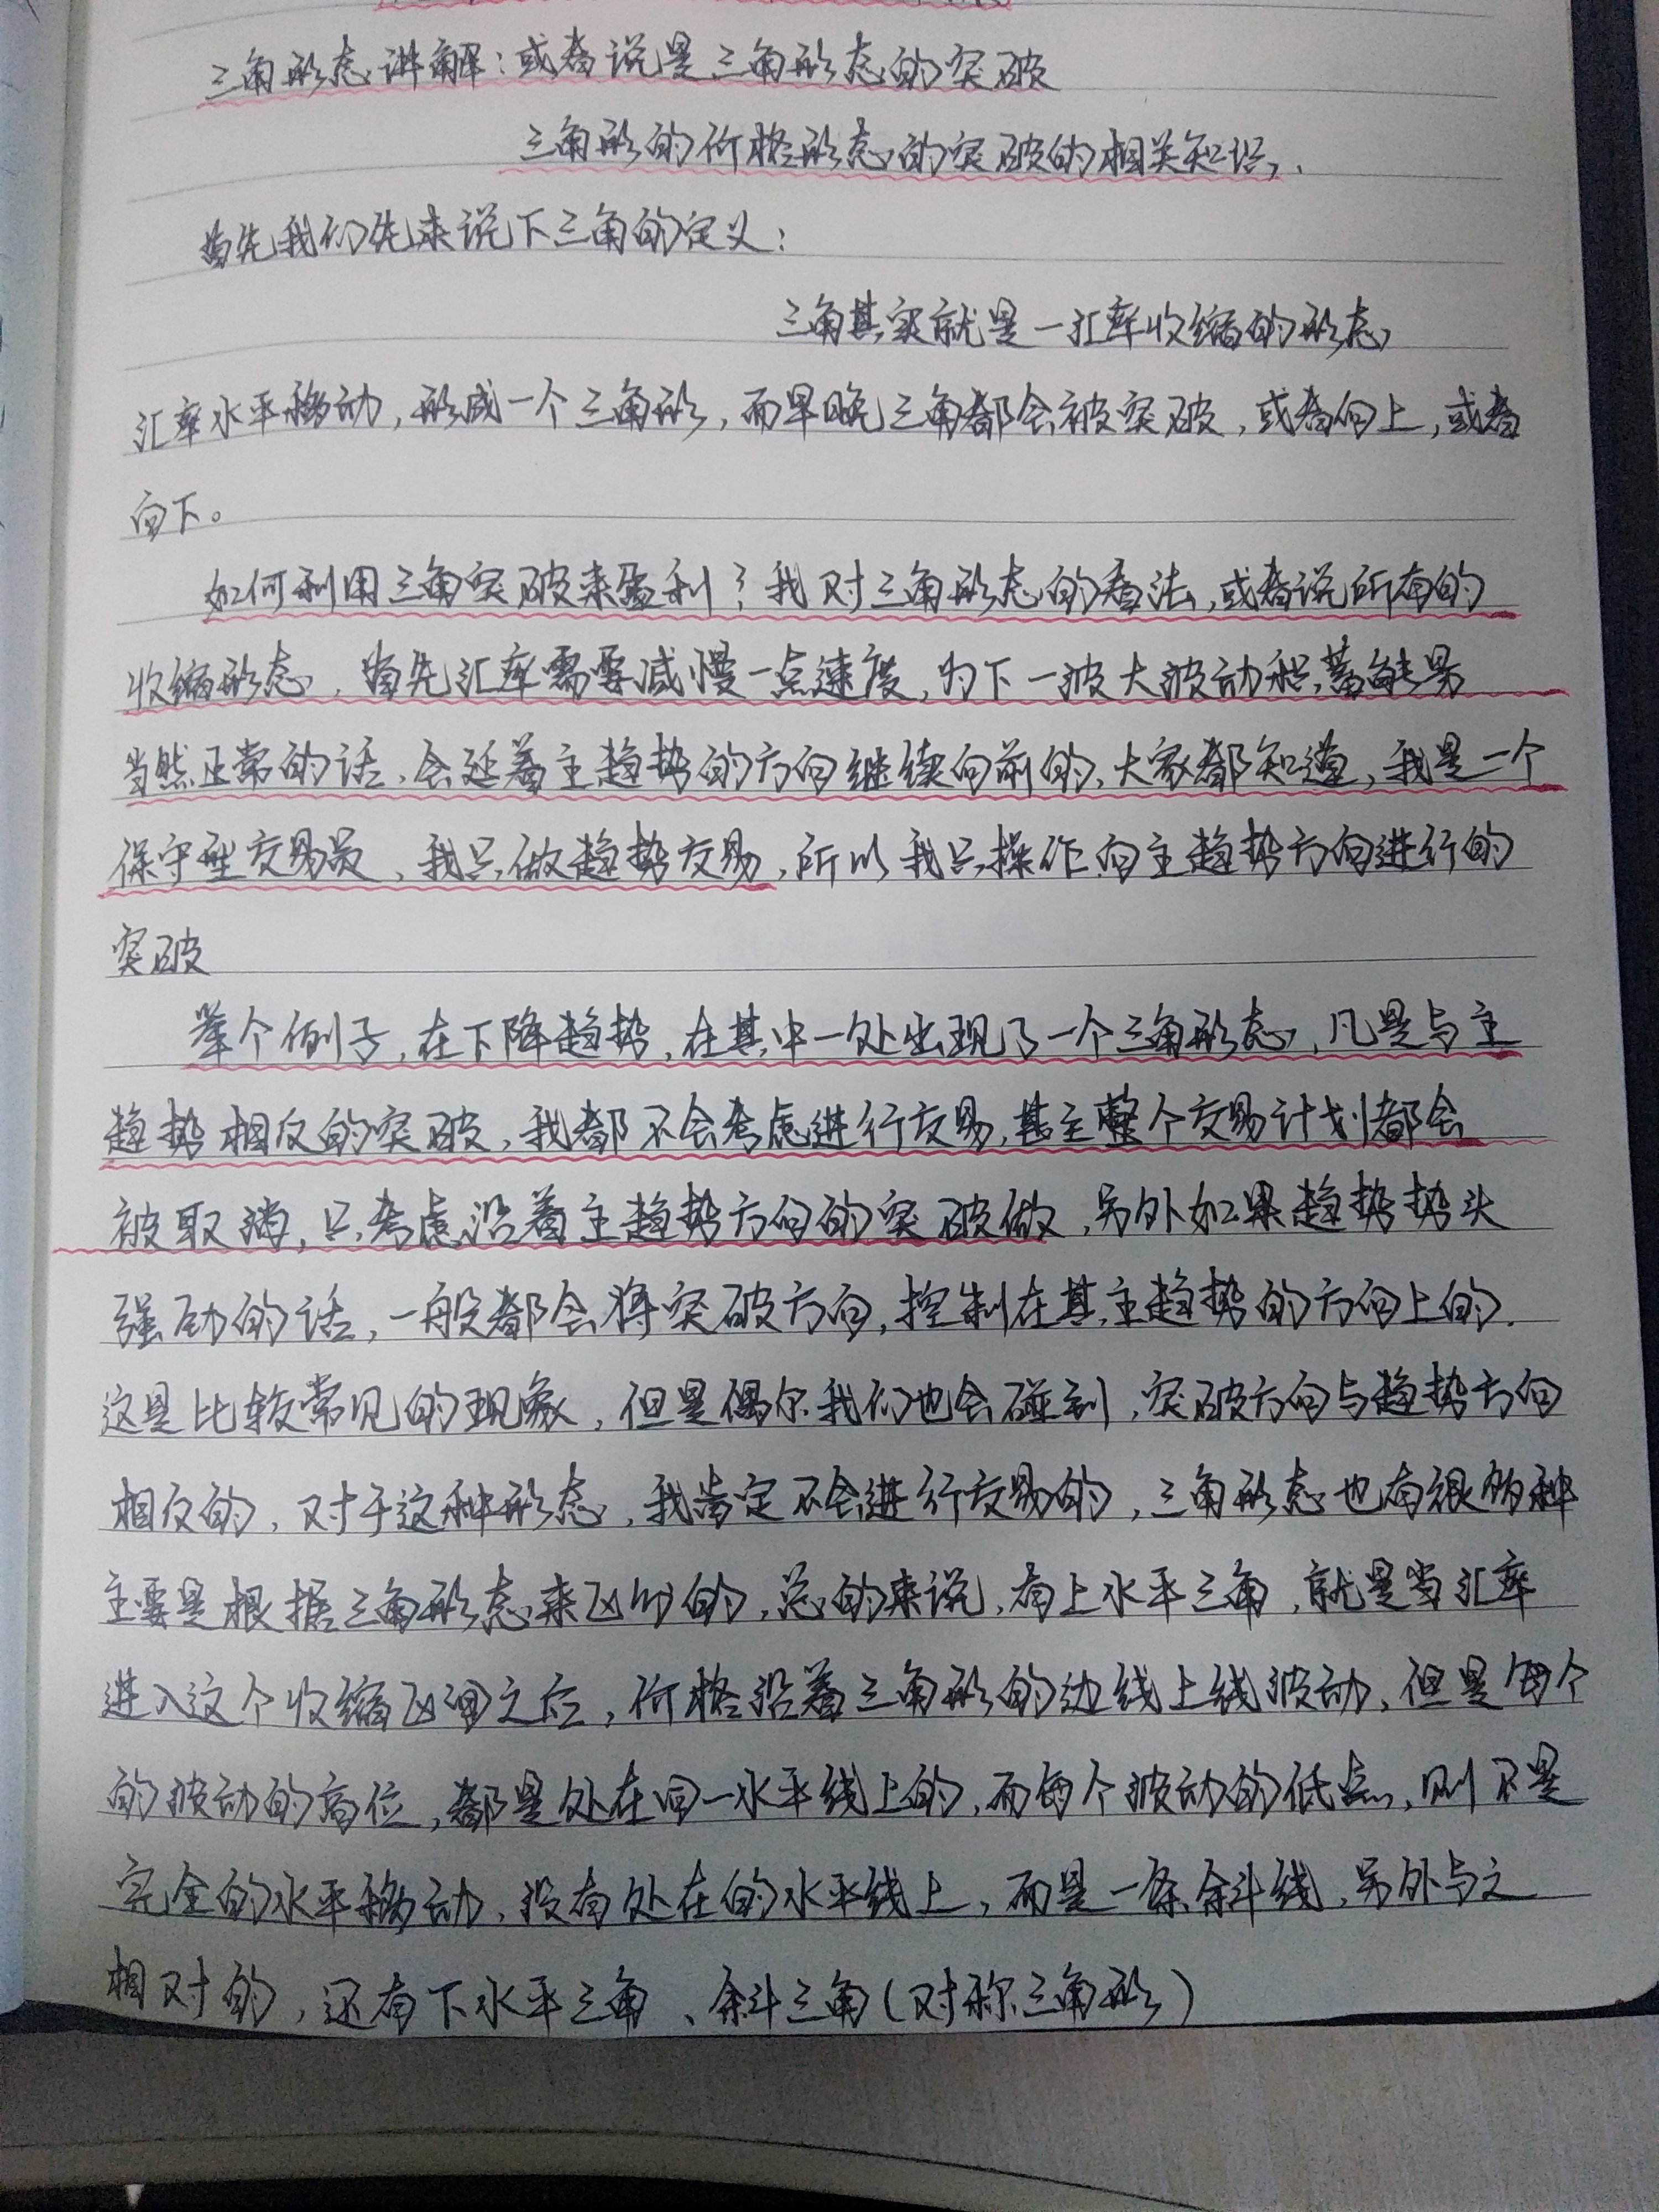 三角形态讲解：或者说是三角形态的突破
三角形的价格形态的突破的相关知识，.
首先我们先来说下三角的定义：
三角其实就是一汇率收缩的形态，
汇率水平移动，形成一个三角形，而早晚三角都会被突破，或者向上，或者
向下。
如何利用三角突破来盈利？我对三角形态的看法，或者说所有的
收缩形态，首先汇率需要减慢一点速度，为下一波大波动积蓄能量
当然正常的话，会延着主趋势的方向继续向前的，大家都知道，我是一个
保守型交易员，我只做趋势交易，所以我只操作向主趋势方向进行的
突破
举个例子，在下降趋势，在其中一处出现了一个三角形态，凡是与主
趋势相反的突破，我都不会考虑进行交易，甚至整个交易计划都会
被取消，只考虑沿着主趋势方向的突破做，另外如果趋势势头
强劲的话，一般都会将突破方向，控制在其主趋势的方向上的.
这是比较常见的现象，但是偶尔我们也会碰到，突破方向与趋势方向
相反的，对于这种形态，我肯定不会进行交易的，三角形态也有很多种
主要是根据三角形态来区分的，总的来说，有上水平三角，就是当汇率
进入这个收缩区间之后，价格沿着三角形的边线上线波动，但是每个
的波动的高位，都是处在同一水平线上的，而每个波动的低点，则不是
完全的水平移动，没有处在的水平线上，而是一条斜线，另外与之
相对的，还有下水平三角、斜三角（对称三角形）